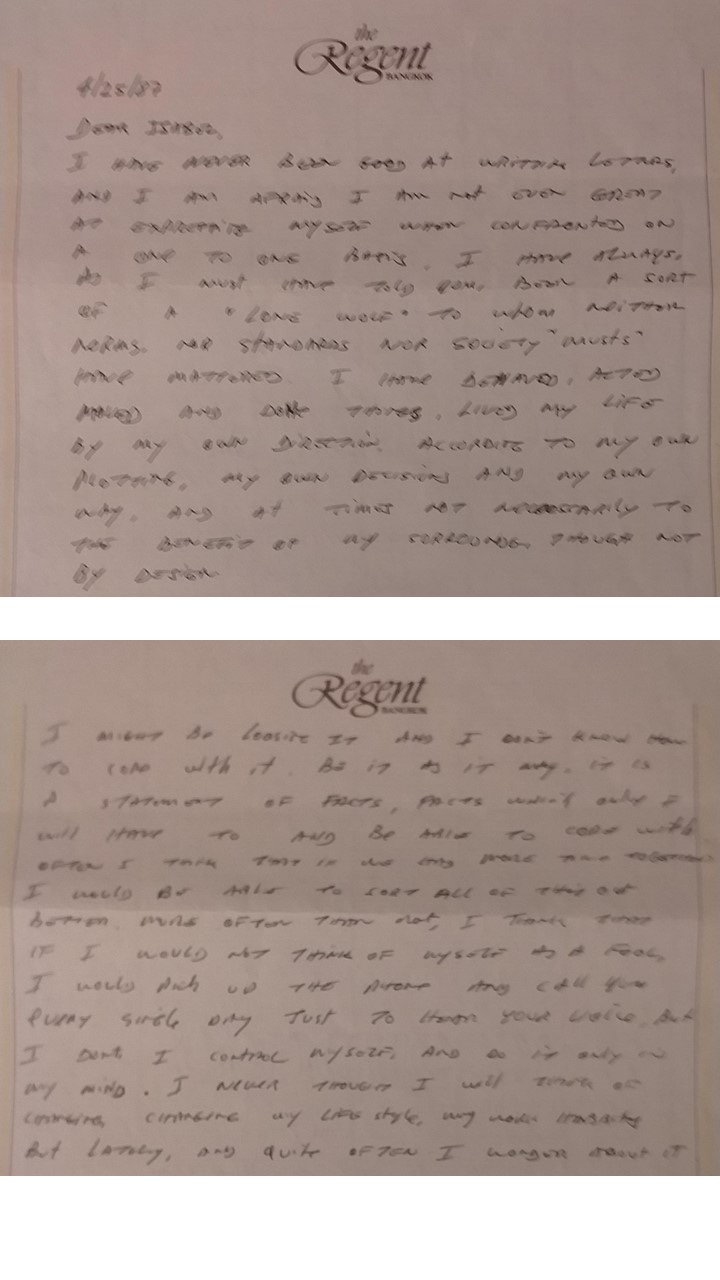 the
Regent
BANGKOK
4/25/87
DEAR ISABEL,
I HAVE NEVER BEEN GOOD AT WRITING LETTERS,
AND I AM AFRAID I AM NOT EVEN GREAT
AT EXPRESSING MYSELF WHEN CONFRONTED ON
A ONE TO ONE BASIS. I HAVE ALWAYS,
AS I MUST HAVE TOLD YOU, BEEN A SORT
OF A "LONE WOLF" TO WHOM NEITHER
NORMS, NOR STANDARDS NOR SOCIETY "MUSTS"
HAVE MATTERED. I HAVE BEHAVED, ACTED
MOVED AND DONE THINGS, LIVED MY LIFE
BY MY OWN DIRECTION. ACCORDING TO MY OWN
MY OWN DECISIONS AND MY OWN
WAY, AND AT TIMES NOT NECESSARILY TO
THE BENEFIT OF MY SORROUNDS, THOUGH NOT
BY DESIGN
the
Regent
BANGKOK
I MIGHT BE LOOSING IT AND I DON'T KNOW HOW
TO COPE WITH IT. BE IT AS IT MAY, IT IS
A STATEMENT OF FACTS, FACTS WHICH ONLY I
WILL HAVE TO AND BE ABLE TO COPE WITH.
OFTEN I THINK THAT IF WE HAD MORE TIME TOGETHER
I WOULD BE ABLE TO SORT ALL OF THIS OUT
BETTER. MORE OFTEN THAN NOT, I THINK THAT
IF I WOULD NOT THINK OF MYSELF AS A FOOL,
I WOULD PICK UP THE PHONE AND CALL YOU
EVERY SINGLE DAY JUST TO HEAR YOUR VOICE, BUT
I DON'T I CONTROL MYSELF, AND DO IT ONLY IN
MY MIND. I NEVER THOUGHT I WILL THINK OF
CHANGING, CHANGING MY LIFE STYLE, MY WORK
BUT LATELY, AND QUITE OFTEN I WONDER ABOUT IT